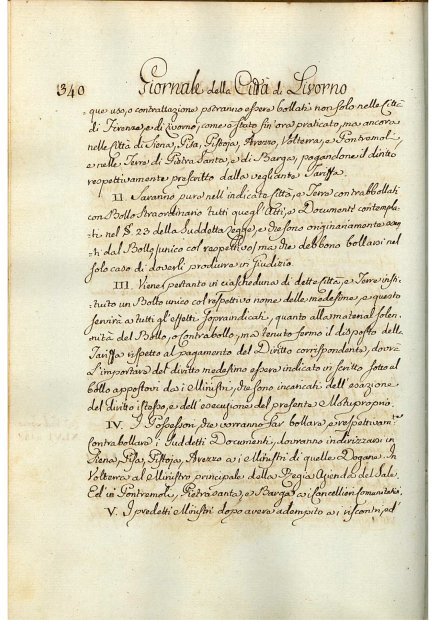 340 Giornale della Città di Livorno
que uso, o contrattazione potranno essere bollati non solo nelle Città
di Firenze, e di Livorno, come è stato fin' ora praticato, ma ancora
nelle Città di Siena, Pisa, Pistoja, Arezzo, Volterra, e Pontremoli,
e nelle Terre di Pietra Santa, e di Barga, pagandone il diritto
respettivamente prescritto dalla vegliante Tariffa.
II. Saranno pure nell' indicate Città, e Terre contrabbollati
con Bollo straordinario tutti quegl' Atti, e Documenti contempla-
ti nel §. 23 della Suddetta Legge, e che sono originariamente esen-
ti dal Bollo (unico col respettivo) ma che debbono bollarsi nel
solo caso di doverli produrre in Giudizio.
III. Viene pertanto in ciascheduna di dette Città, e Terre insti-
tuito un Bollo unico col respettivo nome delle medesime, e questo
servirà a tutti gl' effetti sopraindicati, quanto alla material solen-
nità del Bollo, o Contrabollo, ma tenuto fermo il disposto della
Tariffa rispetto al pagamento del Diritto corrispondente, dovrà
l' importare del diritto medesimo essere indicato in scritto sotto al
bollo appostovi da i Ministri, che sono incaricati dell' esazione
del diritto istesso, e dell' esecuzione del presente Motuproprio.
IV. I Possessori, che vorranno far bollare, e respettivamte
contrabollare i Suddetti Documenti, dovranno indirizzarsi in
Siena, Pisa, Pistoja, Arezzo a i Ministri di quelle Dogane. In
Volterra al Ministro principale della Regia Azienda del Sale.
Ed in Pontremoli, Pietrasanta, e Barga a i Cancellieri Comunitativi.
V. I predetti Ministri dopo avere adempito a i riscontri, ed